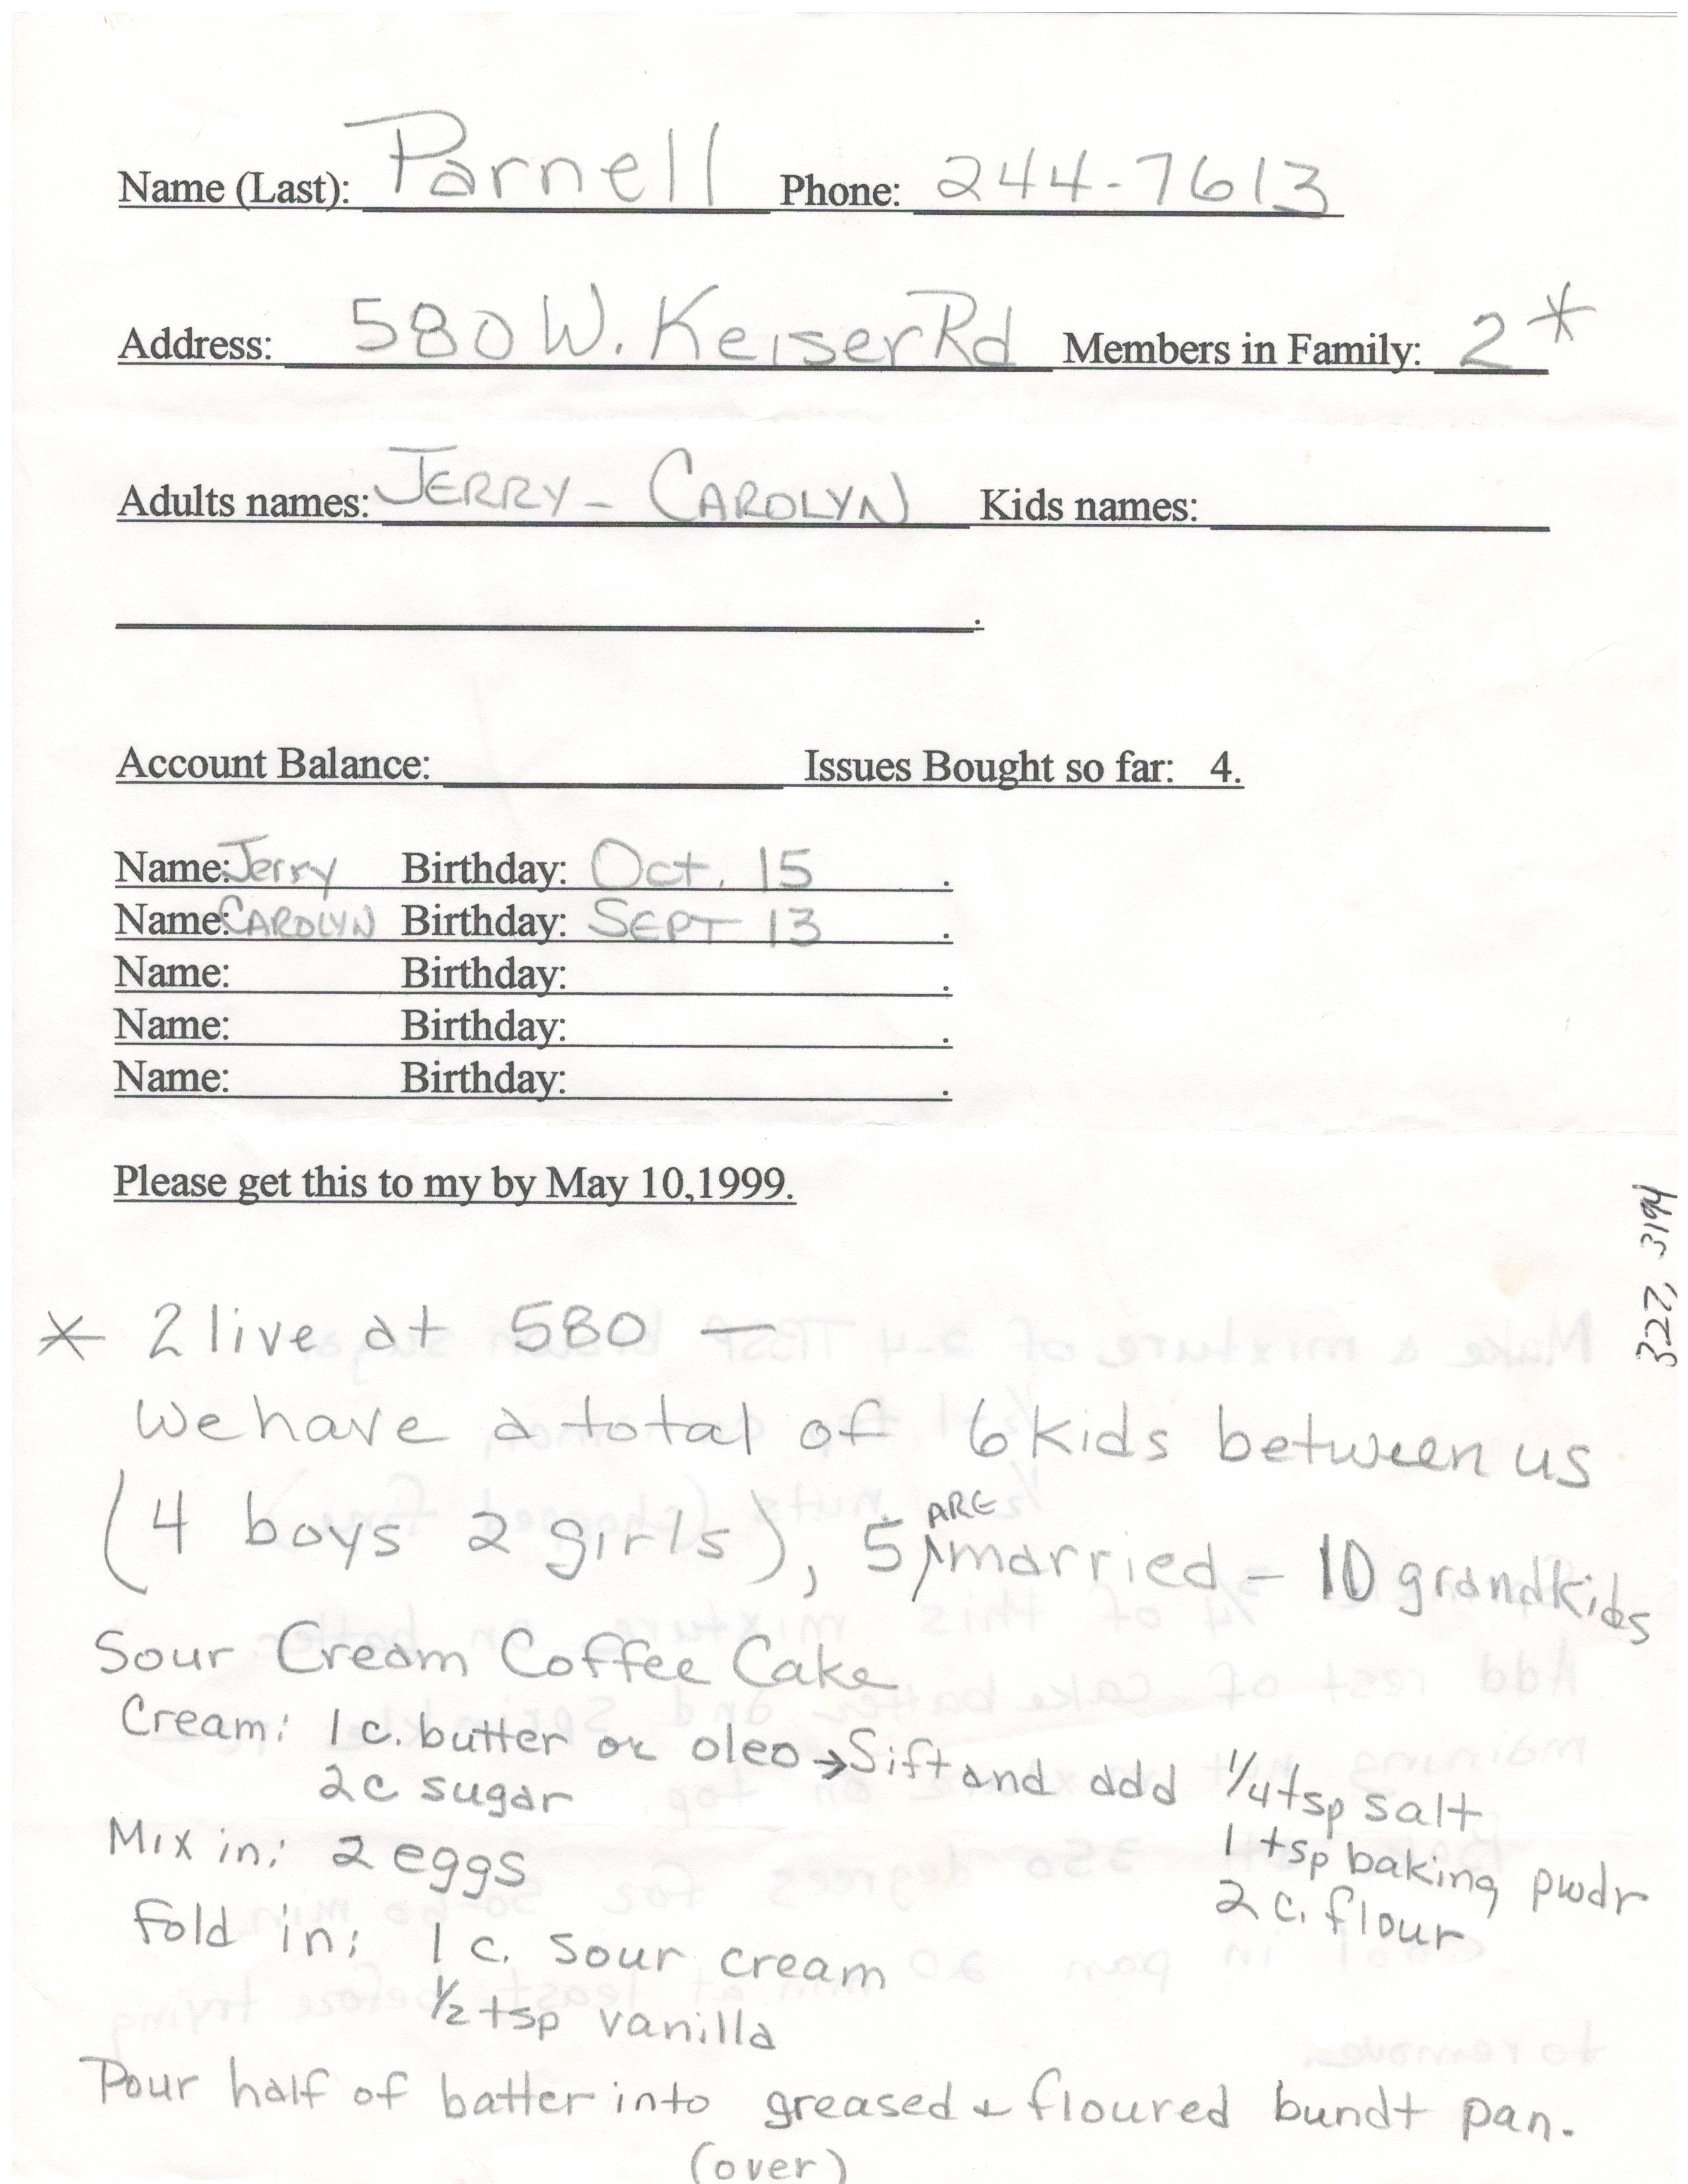 Name (Last): Parnell Phone: 244-7613
Address: 580 W. Keiser Rd Members in Family: 2*
Adults names: JERRY - CAROLYN Kids names:
.
Account Balance: Issues Bought so far: 4.
Name: Jerry Birthday: Oct. 15 .
Name: CAROLYN Birthday: SEPT 13 .
Name: Birthday: .
Name: Birthday: .
Name: Birthday: .
Please get this to my by May 10,1999.
322, 3194
* 2 live at 580 —
We have a total of 6 kids between us
(4 boys 2 girls), 5 ARE married - 10 grandkids
Sour Cream Coffee Cake
Cream: 1 c. butter or oleo → Sift and add 1/4 tsp salt
2c sugar
1 tsp baking pwdr
Mix in: 2 eggs
2 c. flour
Fold in: 1 c. sour cream
1/2 tsp vanilla
Pour half of batter into greased + floured bundt pan.
(over)